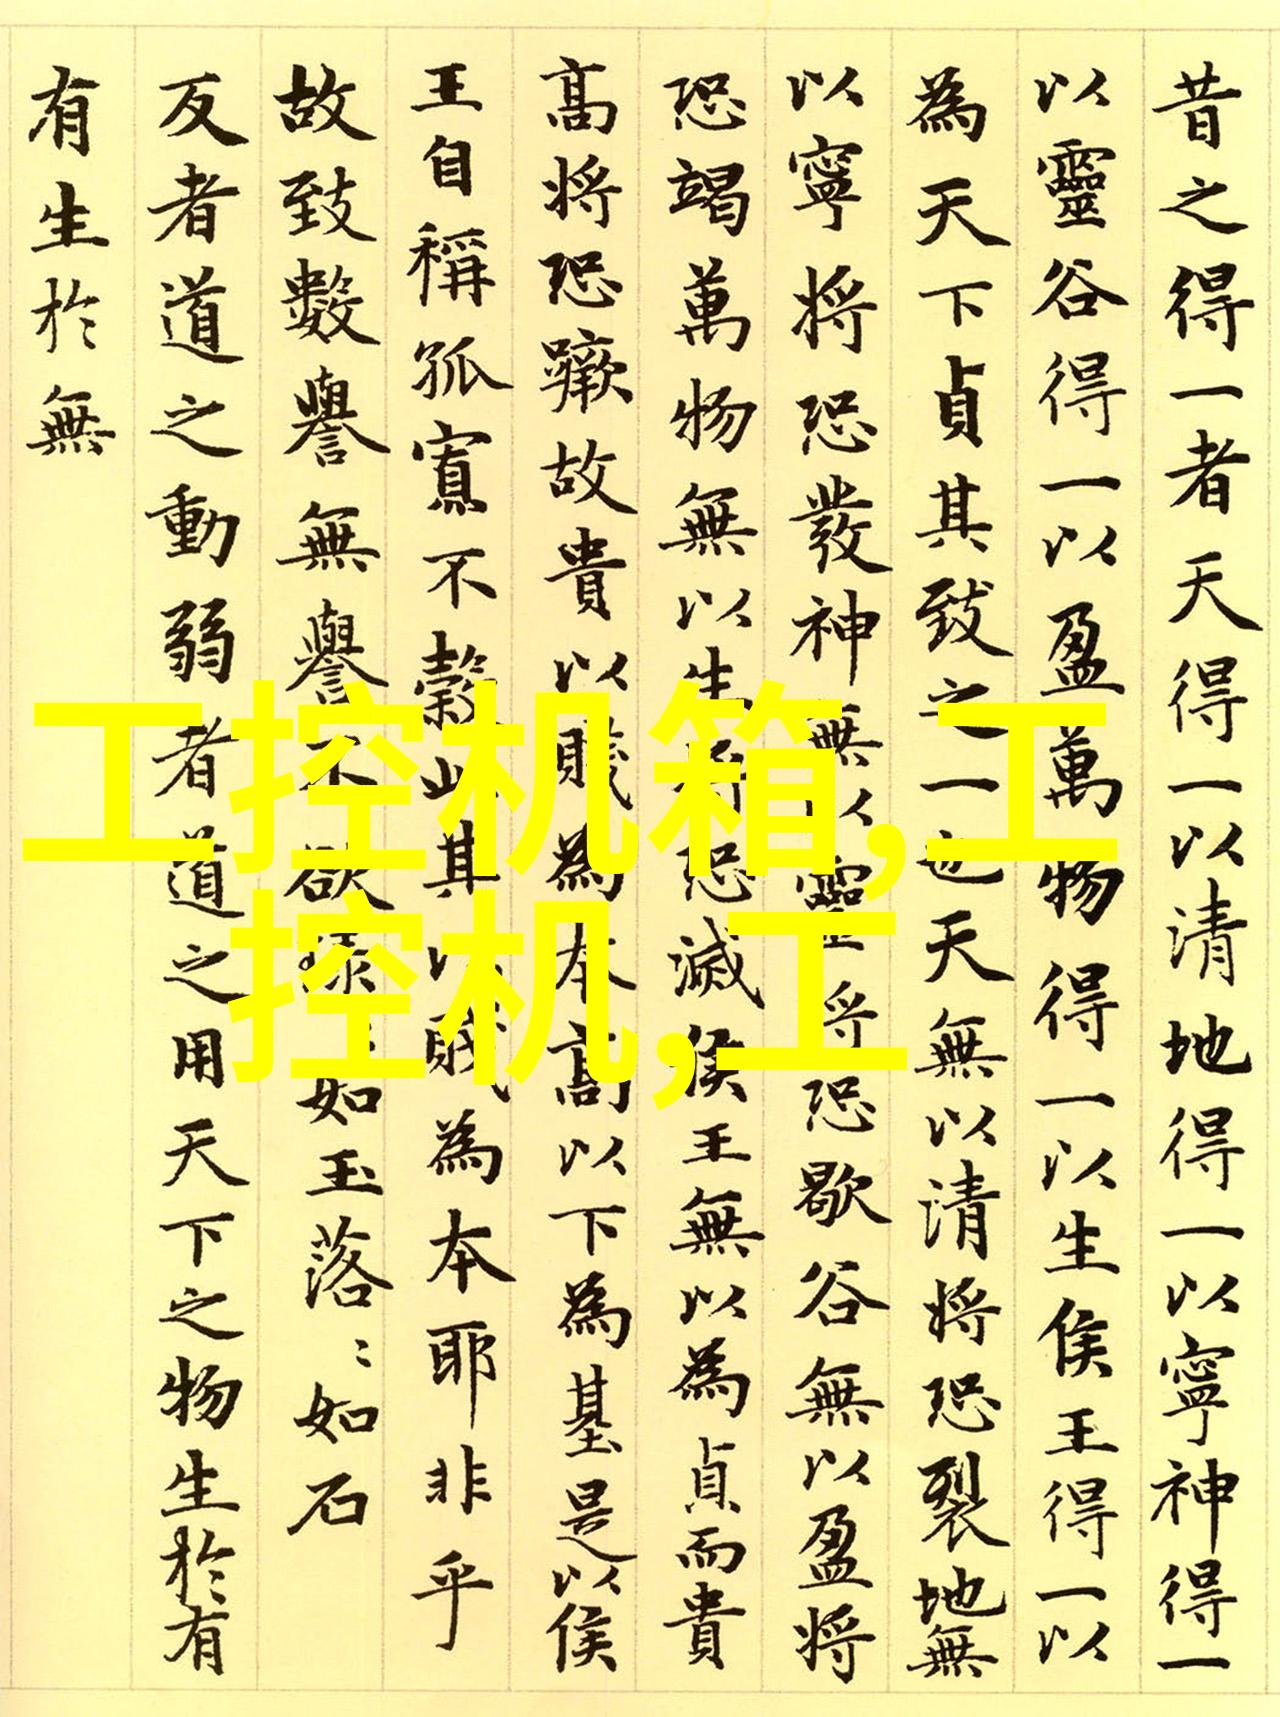 昔之得一者天得一以清地得一以寧神得一
以靈谷得一以盈萬物得一以生侯王得一以
為天下貞其致之一也天無以清將恐裂地無
以寧將恐發神無以靈將恐歇谷無以盈將
恐竭萬物無以生將恐滅侯王無以為貞而貴
高將恐蹶故貴以賤為本高以下為基是以侯
王自稱孤寡不穀此其以賤為本耶非乎
故致數譽無譽不欲琭〻如玉落〻如石
反者道之動弱者道之用天下之物生於有
有生於無
工控机箱,工
控机,工